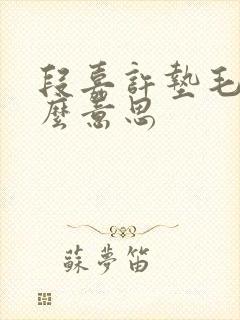 段嘉許墊毛
麼意思
蘇夢笛